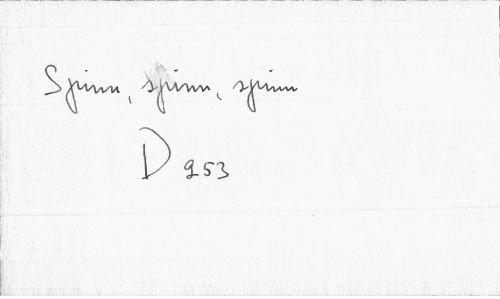 Spinn, spinn, spinn
D 253